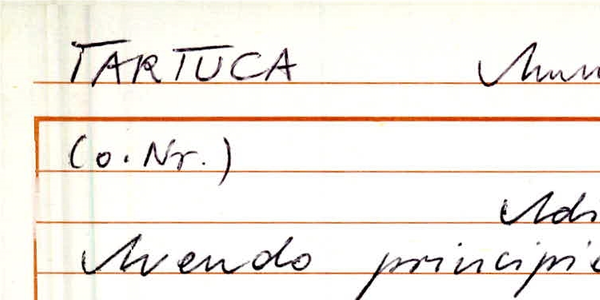 TARTUCA
(o. Nr.)
Adi
Avendo principi